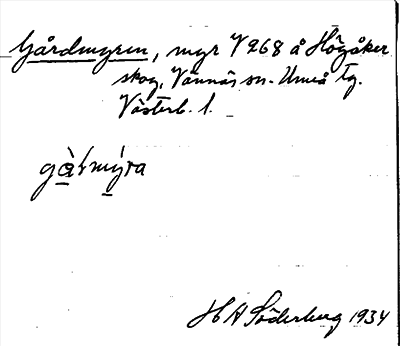 Gårdmyren, myr V 268 å Högåker
skog, Vännäs sn. Umeå tg.
Västerb. l.
gàrmýra
H A Söderberg 1934